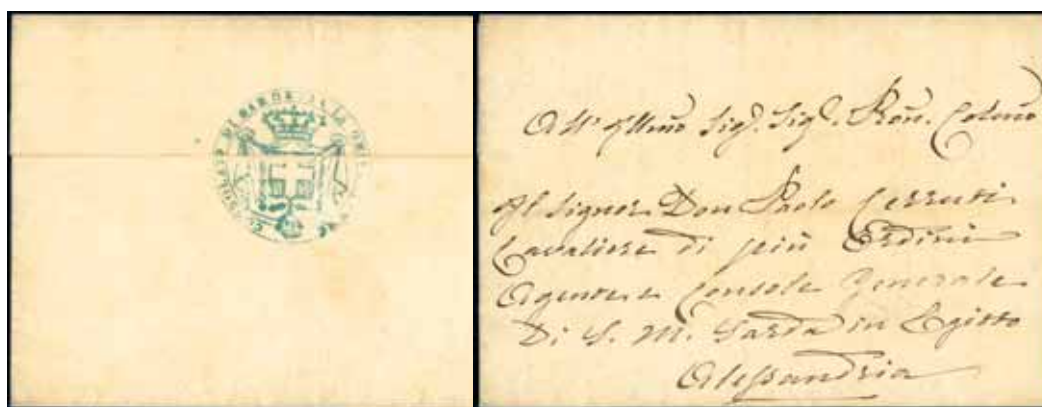 All' Illmo Sigr. Sigr. Pron. Colmo
Il Signor Don Paolo Cerruti
Cavaliere di più Ordini
Agente e Console Generale
Di S. M. Sarda in Egitto
Alessandria